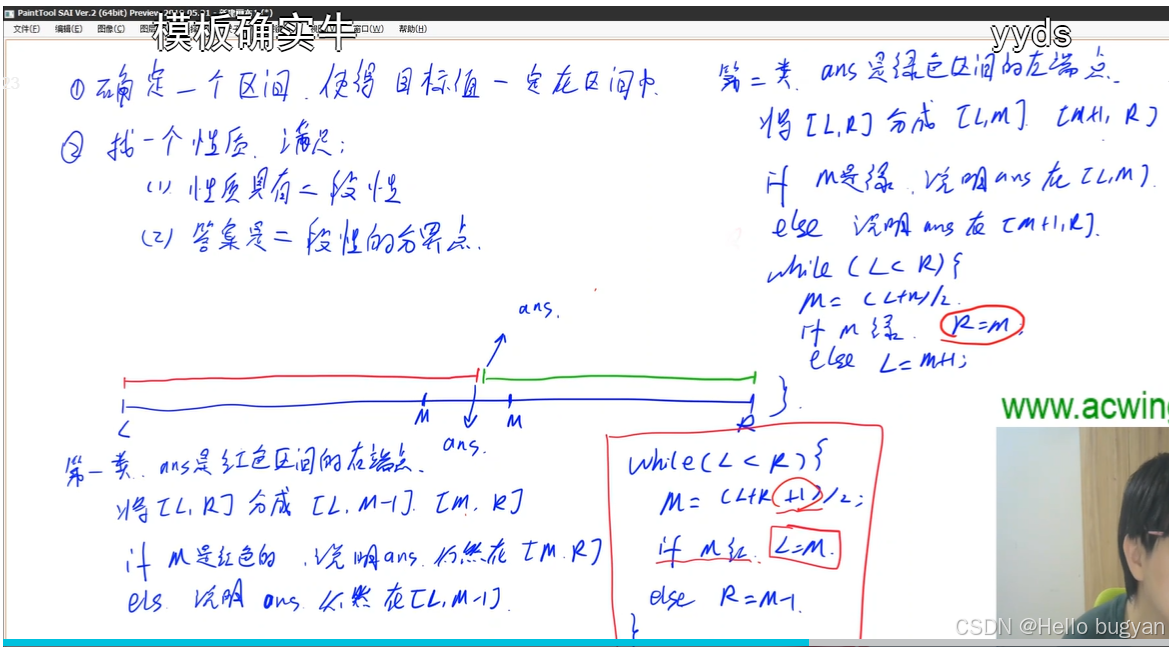 PaintTool SAI Ver.2 (64bit) Preview
文件(F) 编辑(E) 图像(C) 窗口(W) 帮助(H)
模板确实牛
yyds
23
① 确定一个区间，使得目标值一定在区间中
② 找一个性质，满足：
(1) 性质具有二段性
(2) 答案是二段性的分界点.
第二类 ans是绿色区间的左端点.
将[L,R]分成[L,M] [M+1, R]
if M是绿，说明ans在[L,M].
else 说明ans在[M+1,R].
while (L<R){
M=(L+R)/2.
if M绿. R=M;
else L=M+1;
}.
ans.
L M M R
ans.
第一类. ans是红色区间的右端点.
将[L,R]分成[L,M-1]. [M,R]
if M是红色的，说明ans.仍然在[M.R]
els 说明 ans 仍然在[L,M-1].
while(L<R){
M=(L+R+1)/2;
if M红 L=M.
else R=M-1.
}
www.acwing
CSDN @Hello bugyan